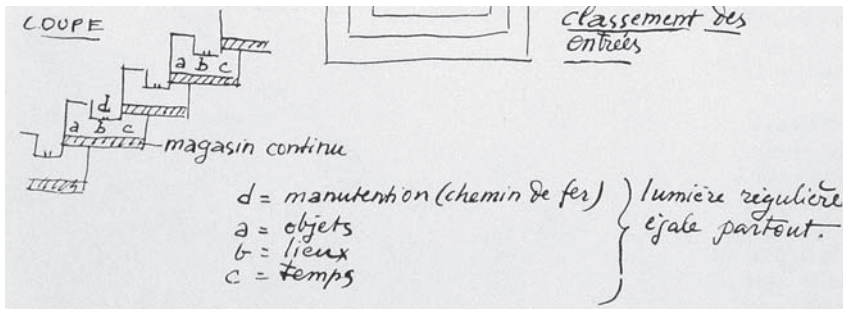 COUPE
classement des
entrées
a b c
d
a b c
magasin continu
d = manutention (chemin de fer)
a = objets
b = lieux
c = temps
lumière régulière
égale partout.